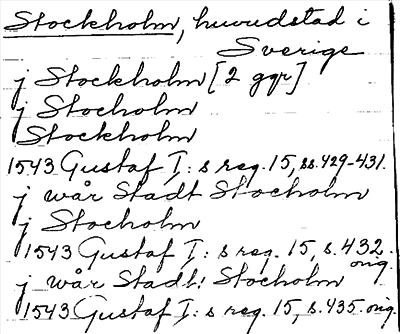 Stockholm, huvudstad i
Sverige
j Stockholm [2 ggr]
j Stocholm
Stockholm
1543 Gustaf I: s reg. 15, ss. 429-431.
j wår Stadt Stocholm
j Stocholm
1543 Gustaf I: s reg. 15, s. 432. orig.
j wår Stadt: Stocholm
1543 Gustaf I: s reg. 15, s. 435. orig.